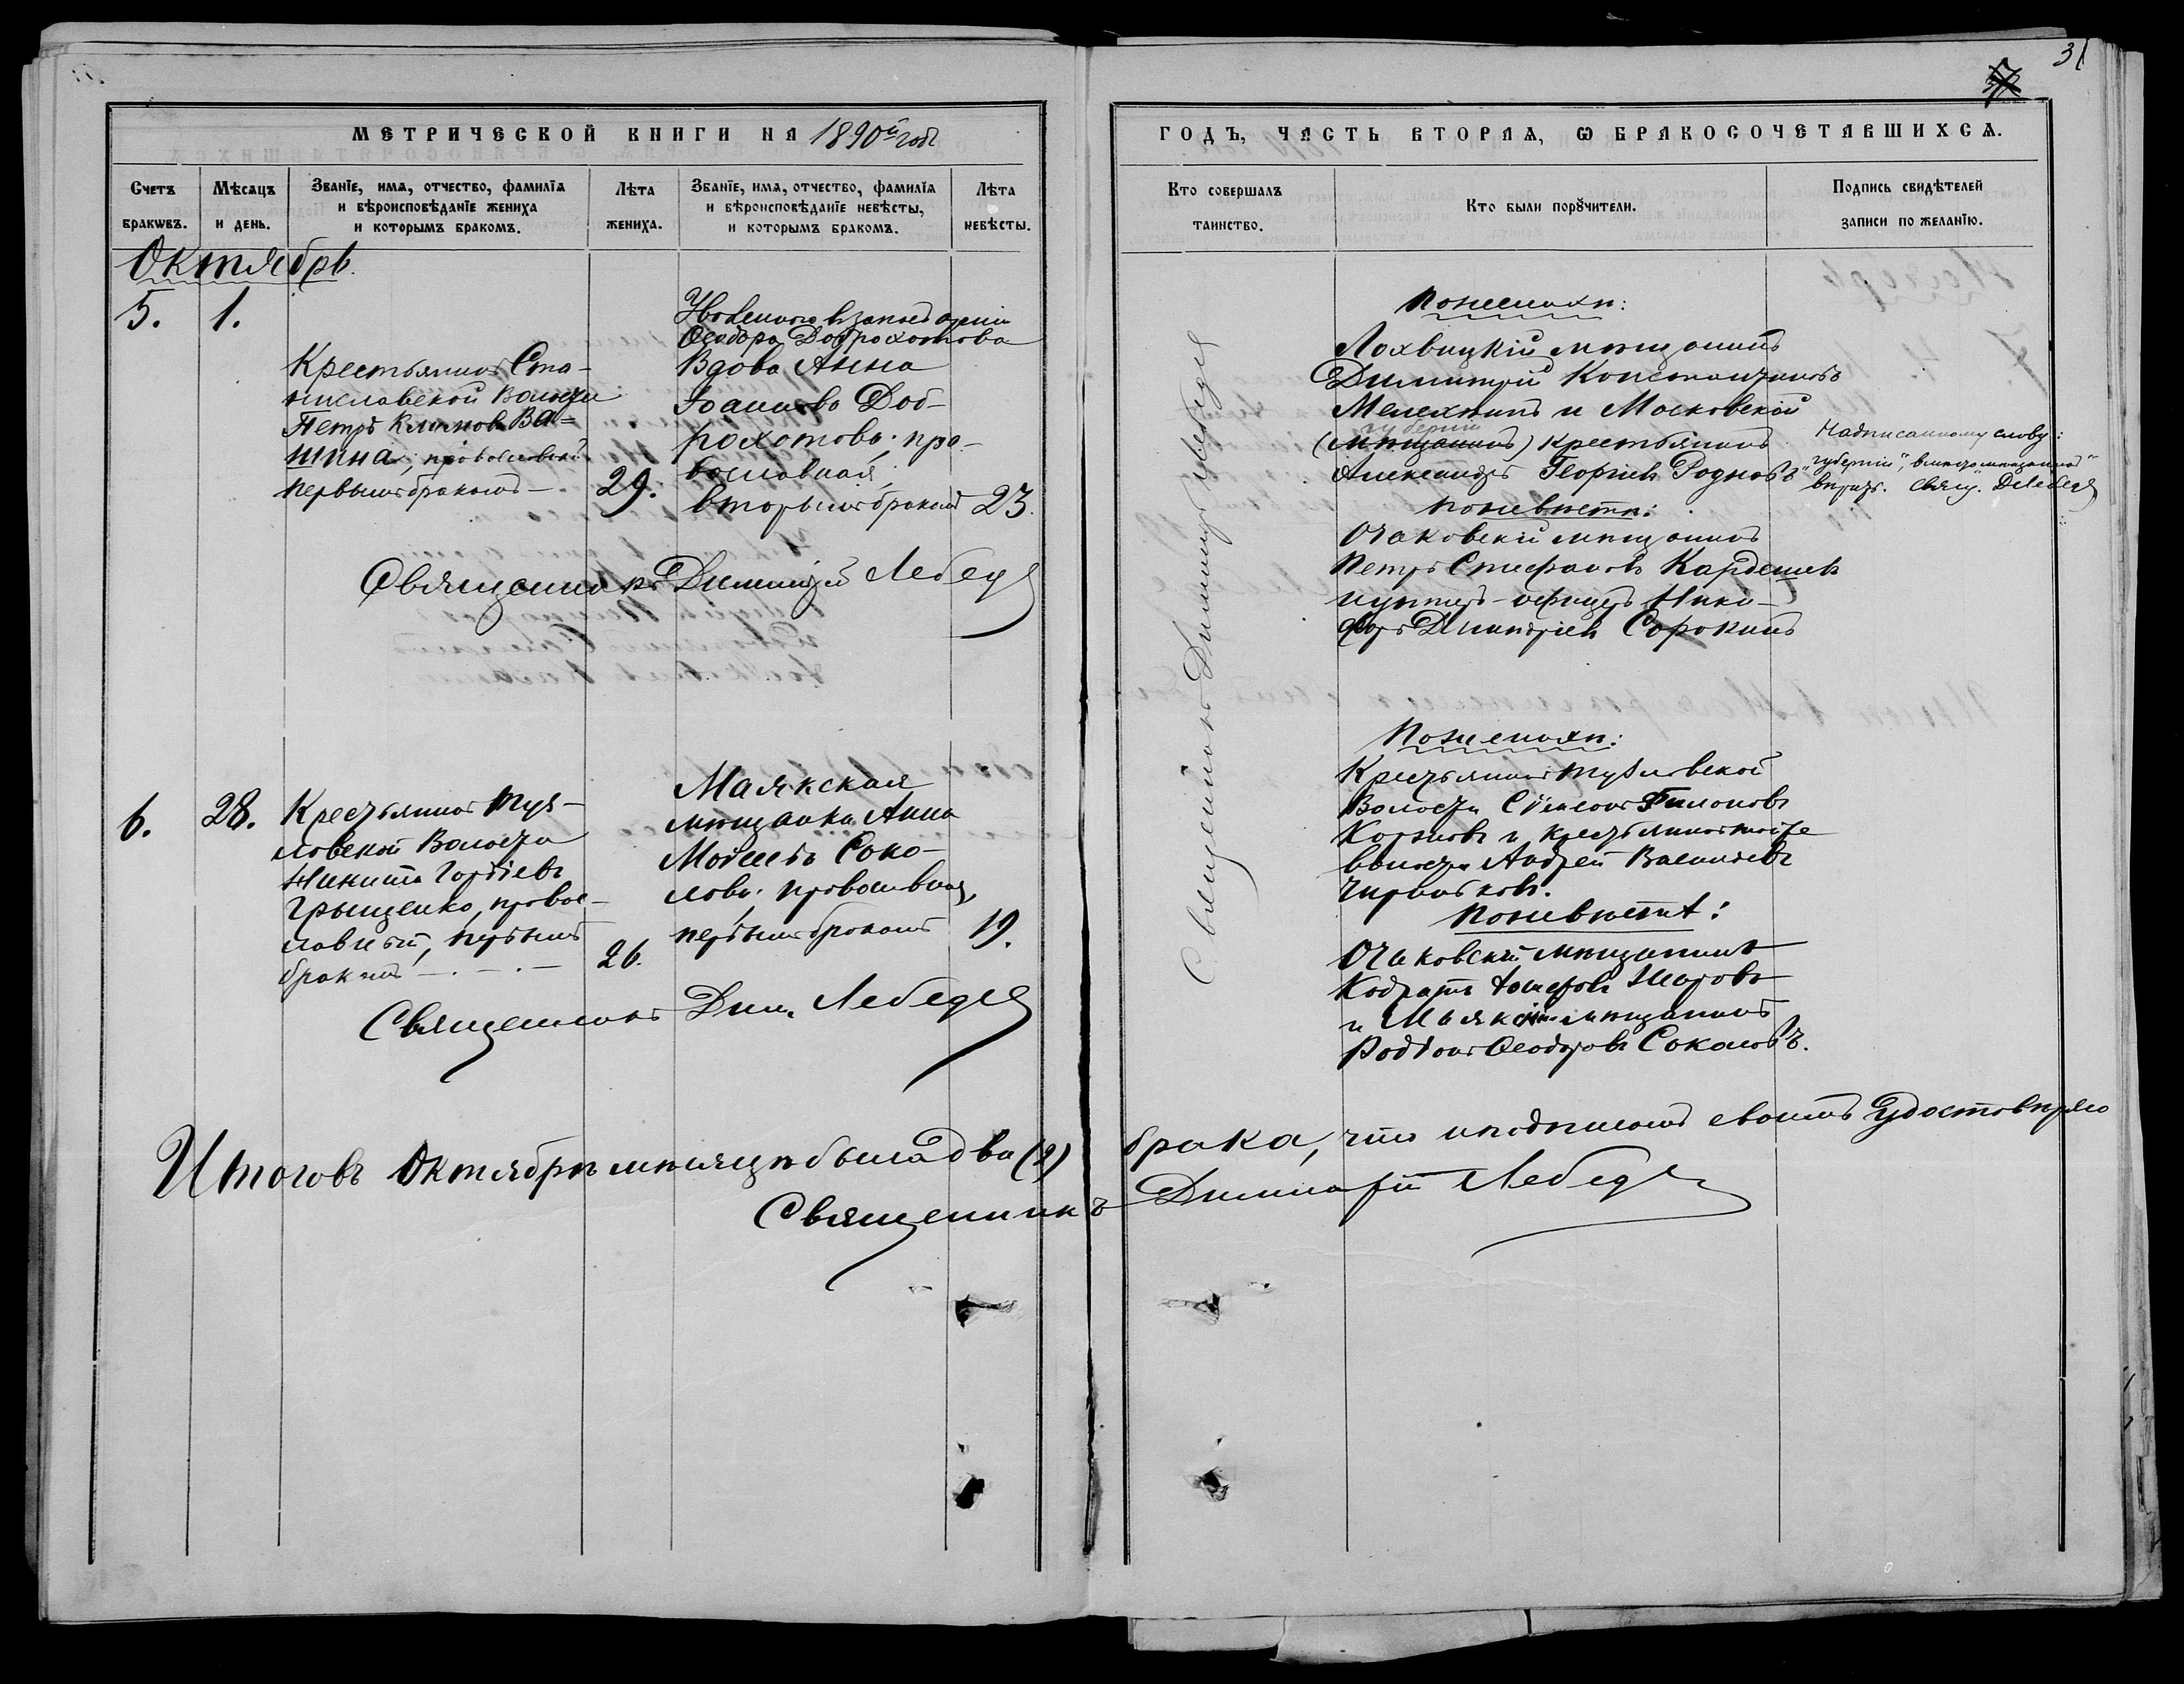 31
МЕТРИЧЕСКОЙ КНИГИ НА 1890й годъ
ГОДЪ, ЧАСТЬ ВТОРАѦ, Ѡ БРАКОСОЧЕТАВШИХСѦ.
Счетъ браковъ.
Мѣсѧцъ и день.
Званїе, имѧ, отчество, фамилїѧ
и вѣроисповѣданїе жениха
и которымъ бракомъ.
Лѣта жениха.
Званїе, имѧ, отчество, фамилїѧ
и вѣроисповѣданїе невѣсты,
и которымъ бракомъ.
Лѣта невѣсты.
Кто совершалъ таинство.
Кто были порꙋчители.
Подпись свидѣтелей
записи по желанїю.
Октябрь.
5.
1.
Крестьянинъ Ста-
ниславской Волости
Петръ Климовъ Ва=
шина, православный
первымъ бракомъ —
29.
Уволеннаго въ запасъ арміи
Ѳеодора Доброхотова
Вдова Анна
Іоаннова Доб-
рохотова, пра-
вославная,
вторымъ бракомъ
23.
Священникъ Димитрій Лебедев
Священникъ Димитрій Лебедев
По женихѣ:
Лохвицкій мѣщанинъ
Димитрій Константиновъ
Мелехинъ и Московской
губерніи
(мѣщанинъ) крестьянинъ
Александръ Георгіевъ Родновъ
По невѣстѣ:
Очаковскій мѣщанинъ
Петръ Стефановъ Кардашевъ
и унтеръ-офицеръ Ники-
форъ Димитріевъ Сорокинъ
Надписанному слову:
"губерніи", вмѣсто "мѣщанинъ"
вѣрить. Свящ. Д Лебедев
6.
28.
Крестьянинъ Туз-
ловской Волости
Никита Гордіевъ
Грыщенко, правос-
лавный, первымъ
бракомъ —.—.—
26.
Маякская
мѣщанка Анна
Моисеева Соко-
лова, православная,
первымъ бракомъ
19.
Священникъ Дим. Лебедев
По женихѣ:
Крестьянинъ Тузловской
Волости Сѵмеонъ Филоновъ
и крестьянинъ той же
волости Андрей Васильевъ
По невѣстѣ:
Очаковскій мѣщанинъ
и Маякскій мѣщанинъ
Родіонъ Ѳеодоровъ Соколовъ.
Итого въ Октябрѣ мѣсяцѣ было два (2) брака, что и подписомъ своимъ удостовѣряю
Священникъ Димитрій Лебедев